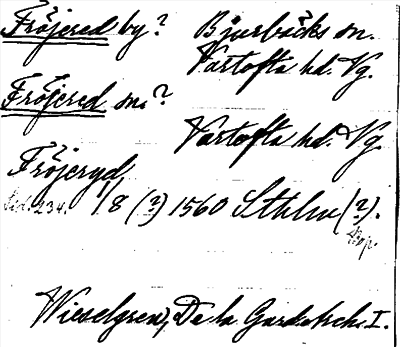 Fröjered by? Bjurbäcks sn.
Vartofta hd. Vg.
Fröjered sn?
Vartofta hd. Vg.
Fröjeryd
Sid. 234. 1/8 (?) 1560 Sthlm (?).
Wieselgren, De la Gardiska I.